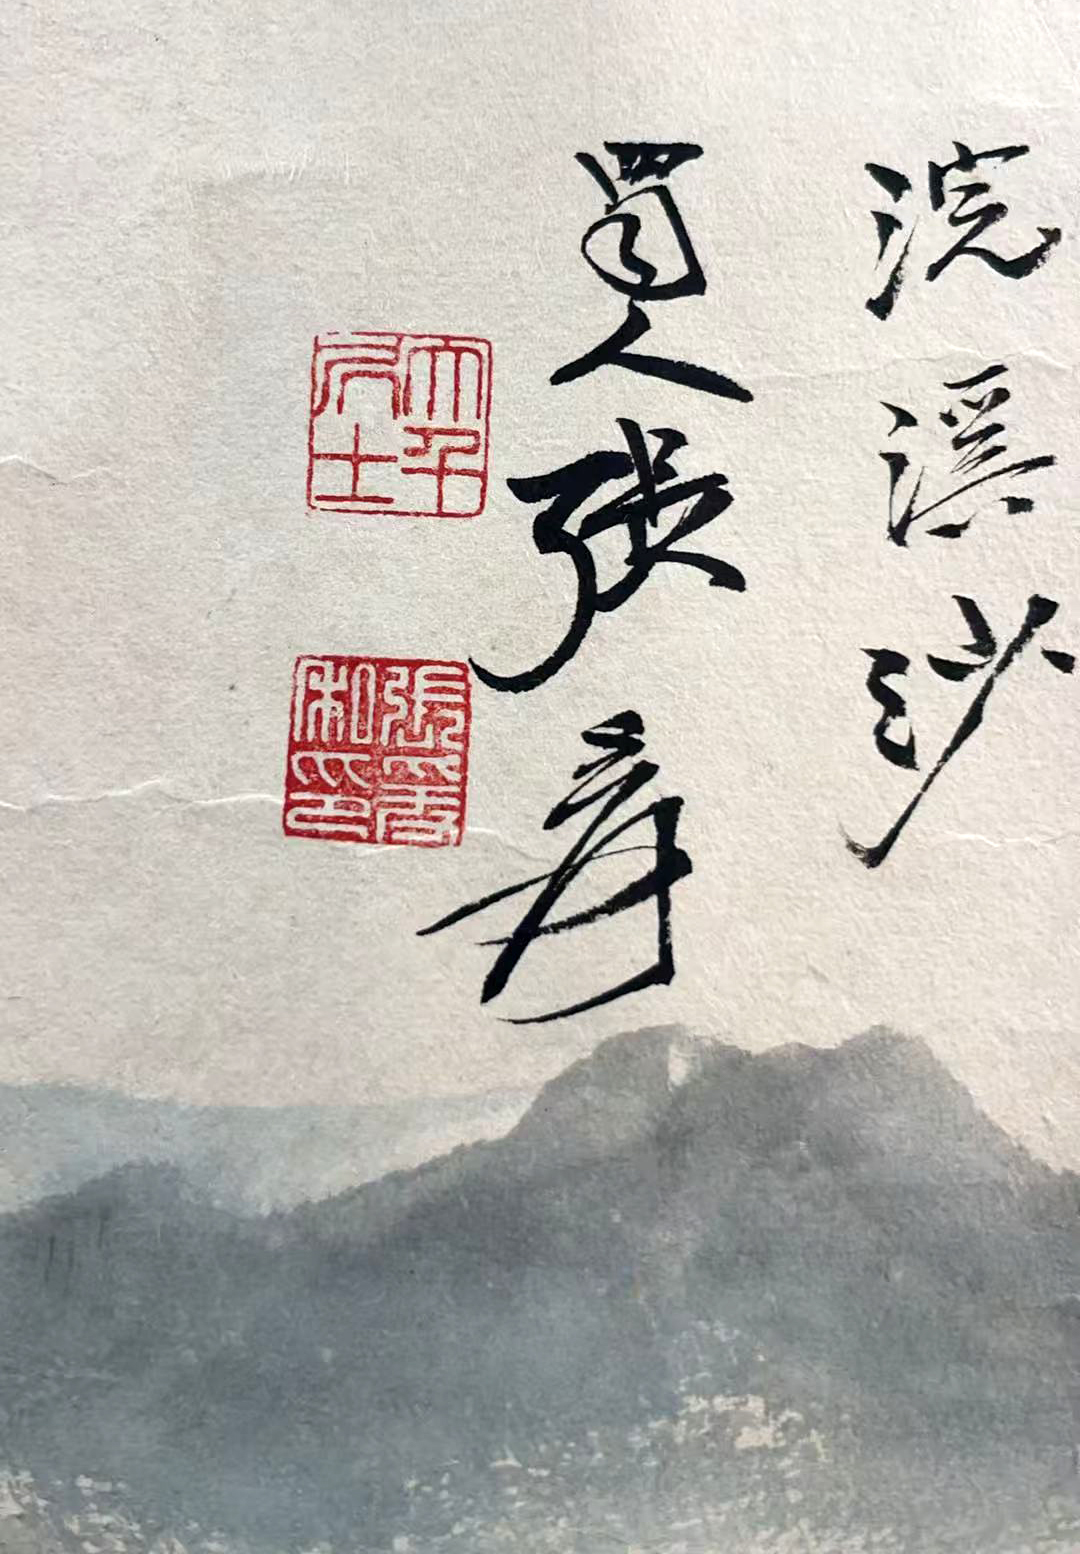 浣溪沙
蜀人張爰
大千居士
張爰私印